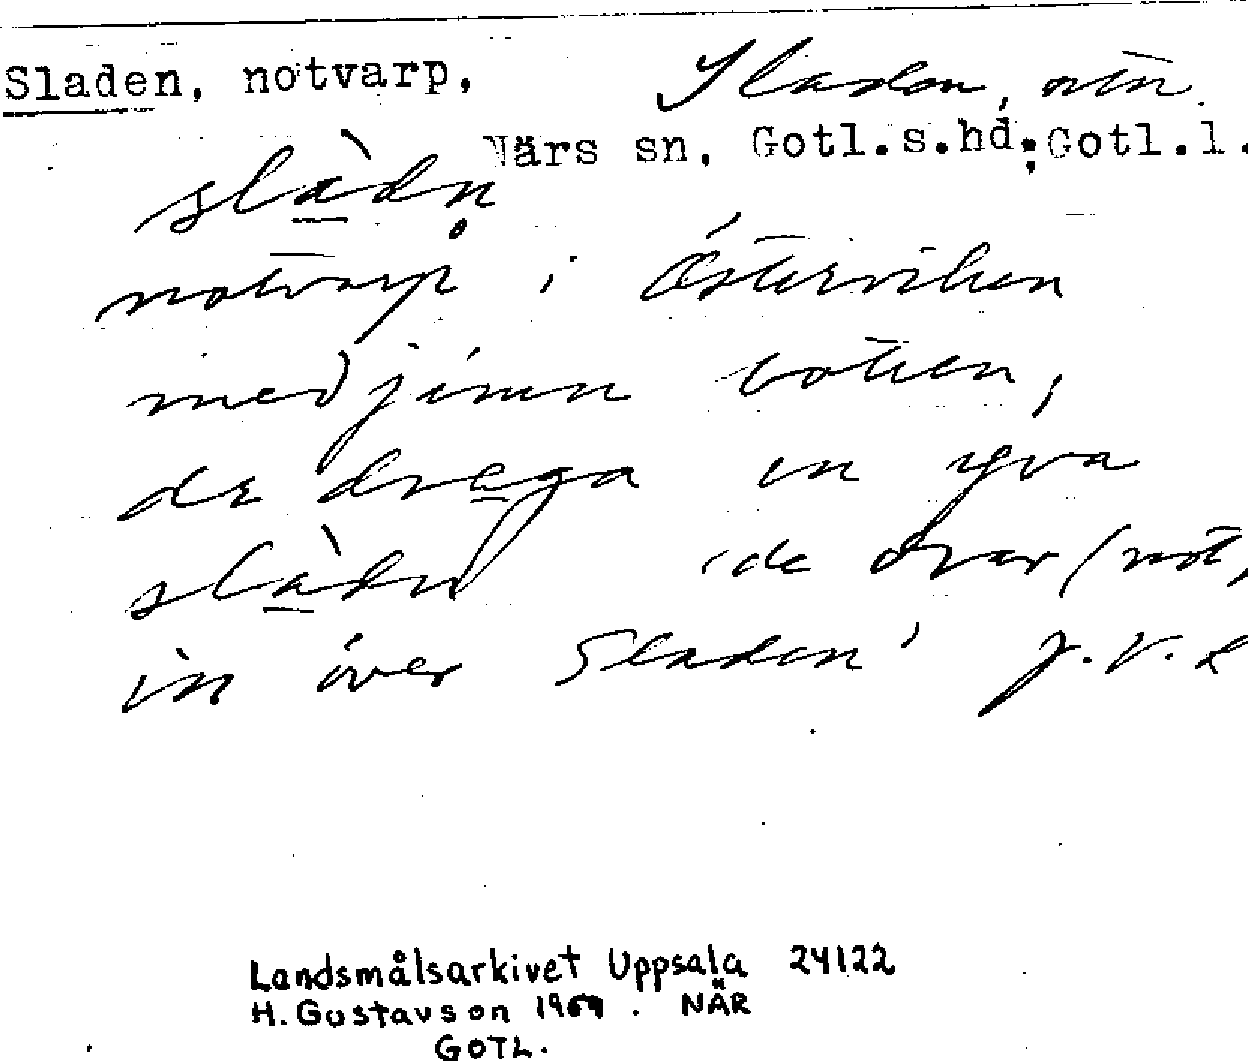 Sladen, notvarp, Sladen, ntn.
Närs sn, Gotl.s.hd; Gotl.l.
slàdn̥
notvarp i Österviken
med jinun botten,
dε draga in yva
slàdn 'de drar (not,
in över Sladen' J.V.R
Landsmålsarkivet Uppsala 24122
H. Gustavson 19 . NÄR
GOTL.